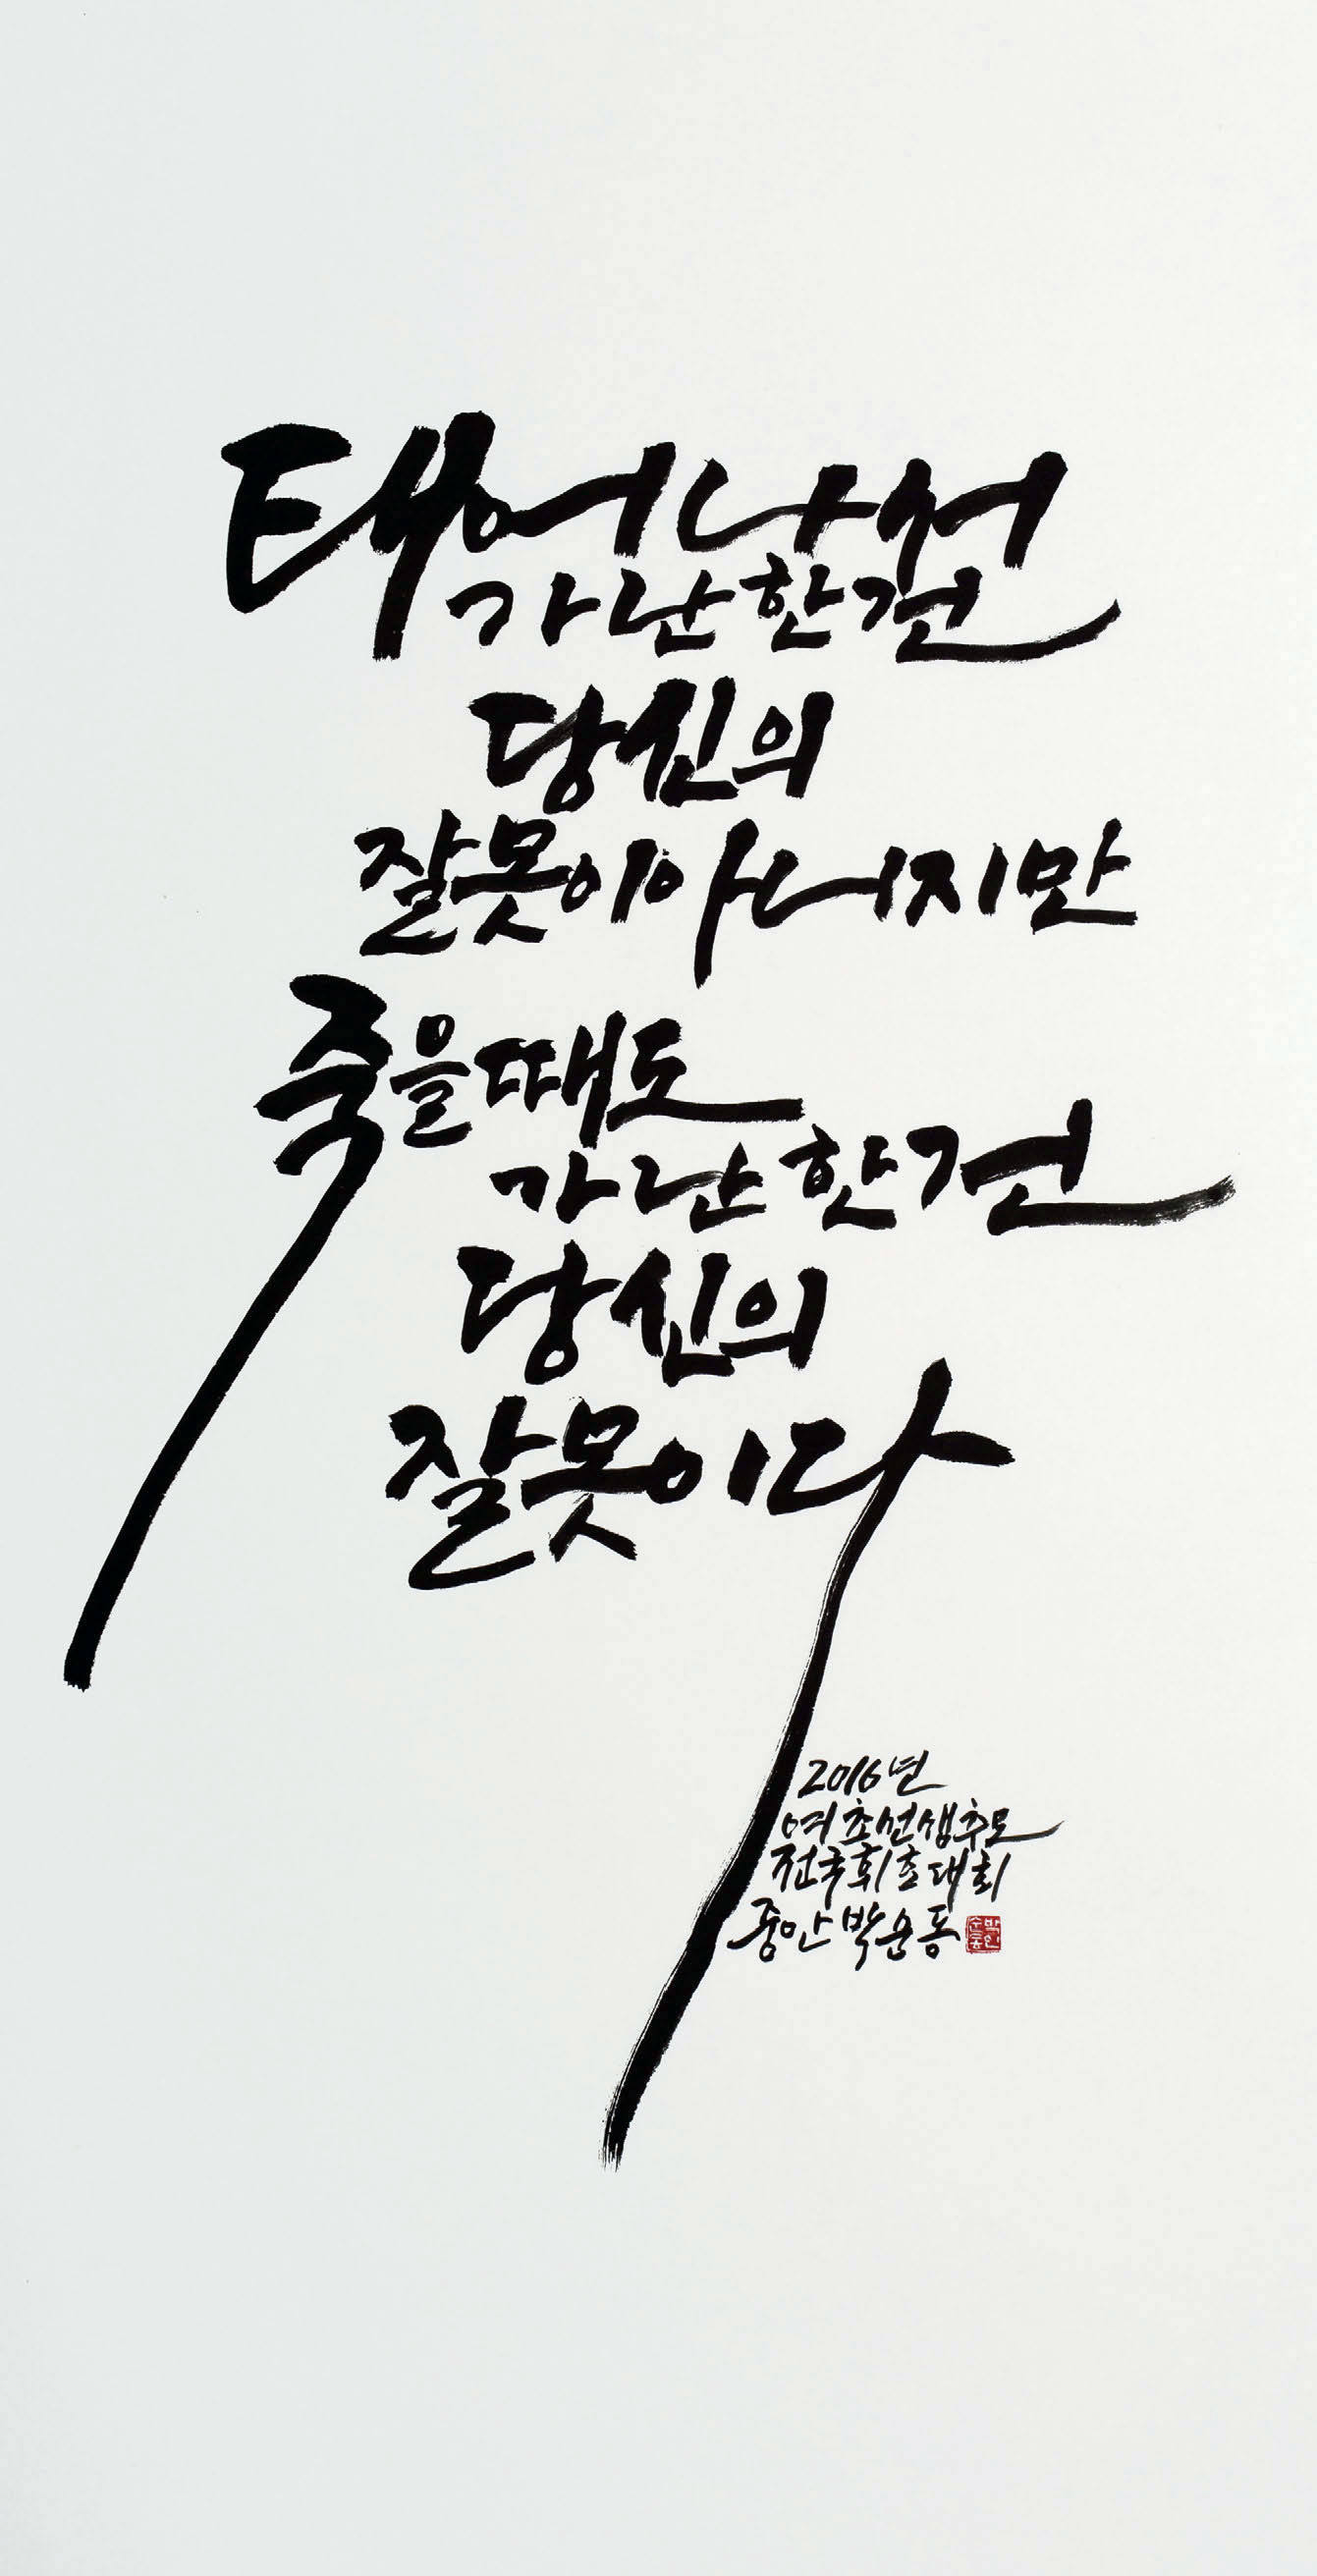 태어나서
가난한건
당신의
잘못이아니지만
죽을때도
가난한건
당신의
잘못이다
2016년
여초선생추모
전국휘호대회
중만 박운동